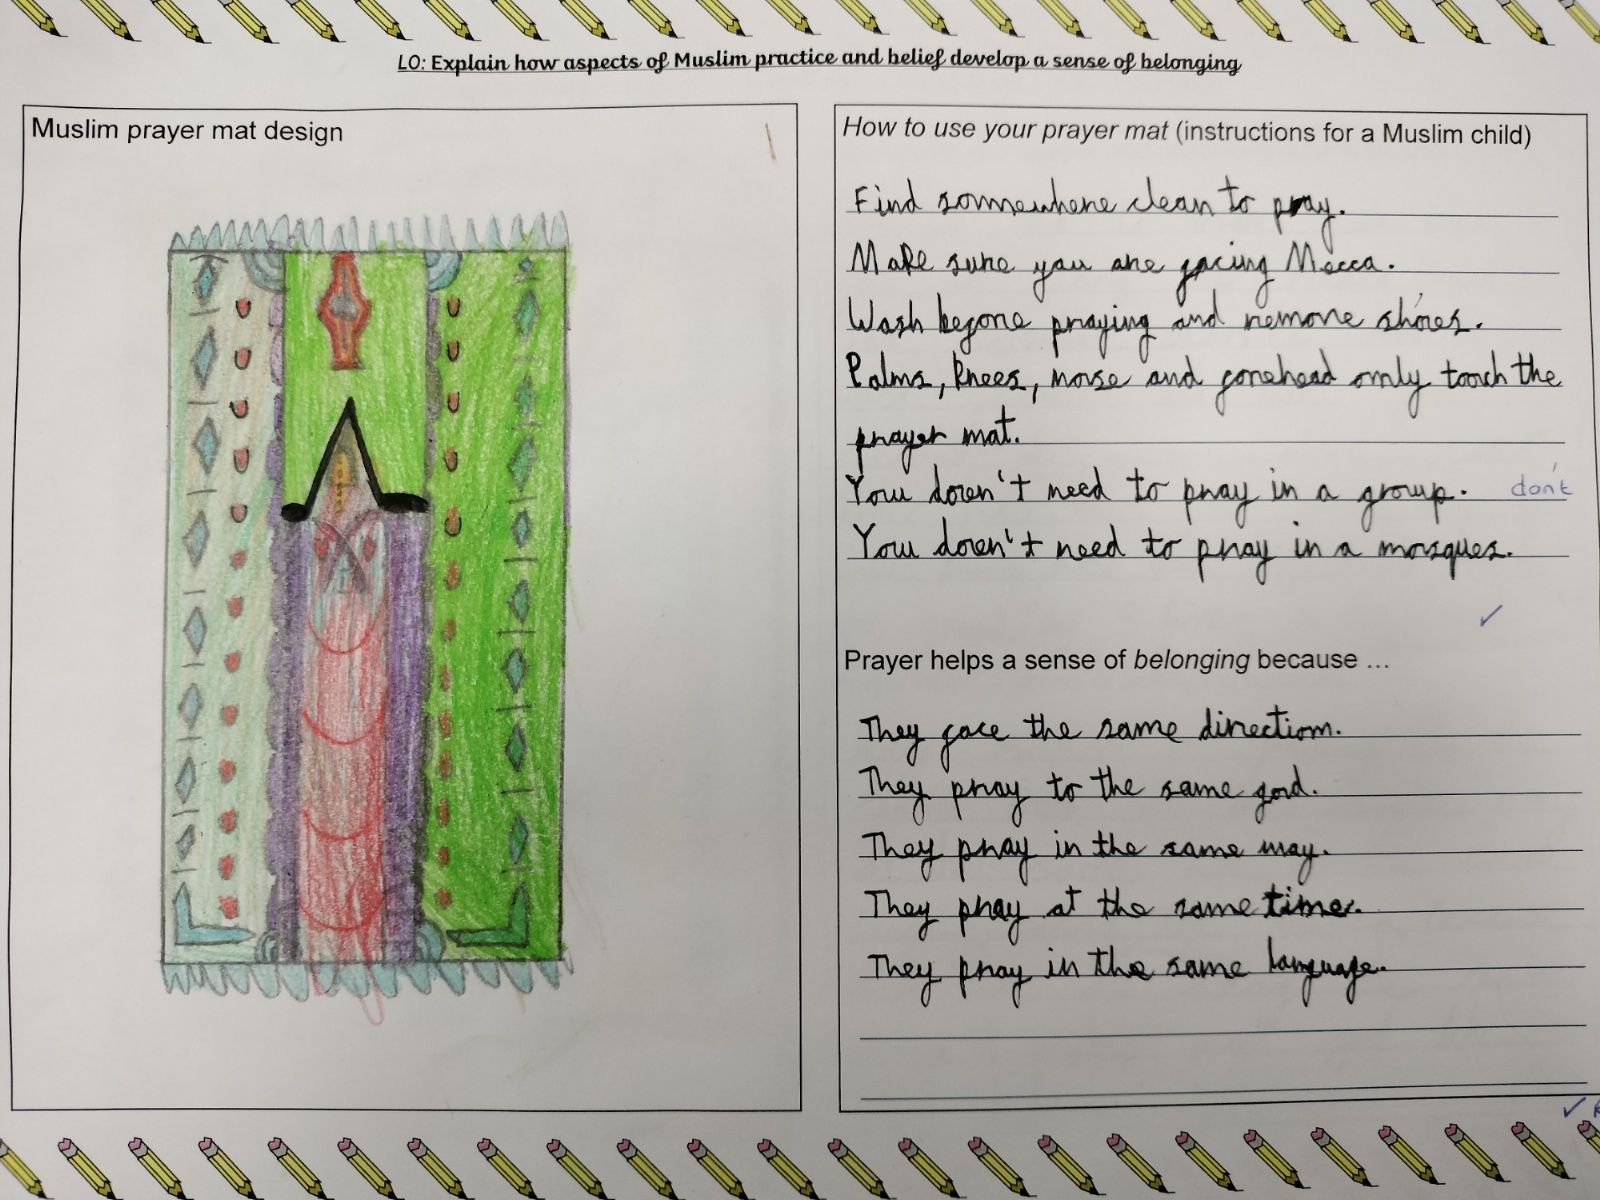 LO: Explain how aspects of Muslim practice and belief develop a sense of belonging
Muslim prayer mat design
How to use your prayer mat (instructions for a Muslim child)
Find somewhere clean to pray.
Make sure you are facing Mecca.
Wash before praying and remove shoes.
Palms, knees, nose and forehead only touch the
prayer mat.
You doren't need to pray in a group. don't
You doren't need to pray in a mosques.
Prayer helps a sense of belonging because ...
They face the same direction.
They pray to the same god.
They pray in the same way.
They pray at the same time.
They pray in the same language.